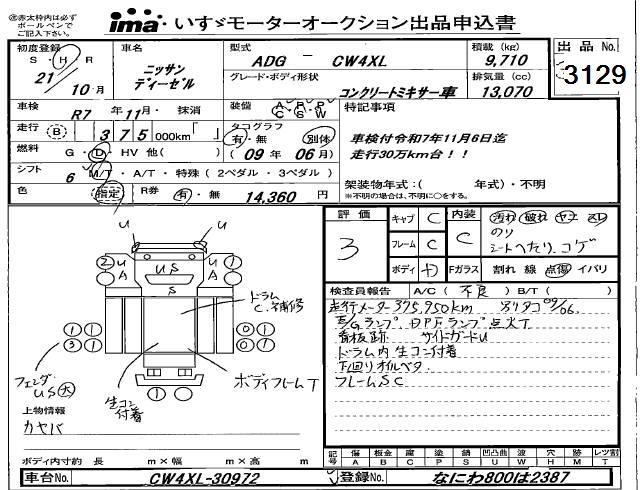 ㊟赤太枠内は必ず
ボールペンで
ご記入下さい。
ima・いすゞモーターオークション出品申込書
初度登録 S・H・R 21年 10月
車名 ニッサン ディーゼル
型式 ADG － CW4XL
グレード・ボディ形状 コンクリートミキサー車
積載(kg) 9,710
排気量(cc) 13,070
出品No. 3129
車検 R7 年 11月・ 抹消
装備 A・P・P C・S・W
走行 B 375 000km「 」
タコグラフ 有・無 別体
燃料 G・D・HV 他( )
(09年 06月)
シフト 6 M/T・A/T・特殊(2ペダル・3ペダル)
色 指定 R券 有・無 14,360 円
特記事項
車検付令和7年11月6日迄
走行30万km台！！
架装物年式：( 年式)・不明
※不明の場合は、不明に○をする。
評価 3
キャブ C
フレーム C
ボディ D
内装 C
汚れ 破れ ヤニ スレ
のり
シートへたり、コゲ
Fガラス 割れ 線 点傷 イバリ
検査員報告 A/C( 不良 ) B/T( )
走行メーター375,950km 別タコ09/06.
E/Gランプ、DPFランプ点火T
看板跡 サイドガードU
ドラム内生コン付着
下回りオイルベタ
フレームSC
U U
2 U A US U A 1
S
1 1 3 1 0 1 0 0
ドラム
C、補修
フェンダー
US大
生コン
付着
ボディフレームT
1
上物情報
カヤバ
ボディ内寸約 長 m×幅 m×高 m
記号 傷 A 板金 B 腐 C 塗 P 錆 S 凹凸曲 U 波 W 穴 H 跡 M レツ割 T
車台No. CW4XL-30972
登録No. なにわ800は2387